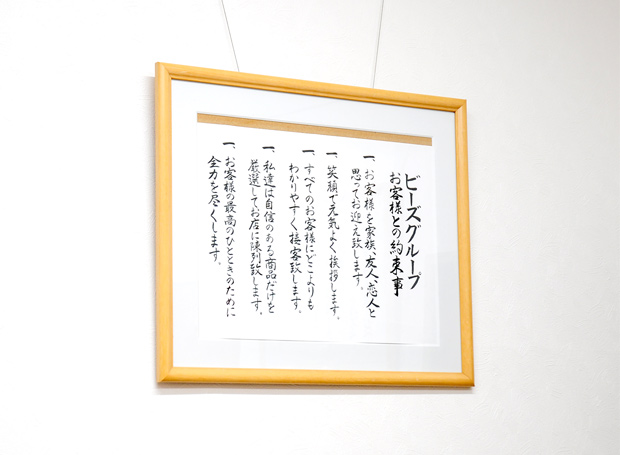 ビーズグループ
お客様との約束事
一、お客様を家族、友人、恋人と
思ってお迎え致します。
一、笑顔で元気よく挨拶します。
一、すべてのお客様にどこよりも
わかりやすく接客致します。
一、私達は自信のある商品だけを
厳選してお店に陳列致します。
一、お客様の最高のひとときのために
全力を尽くします。